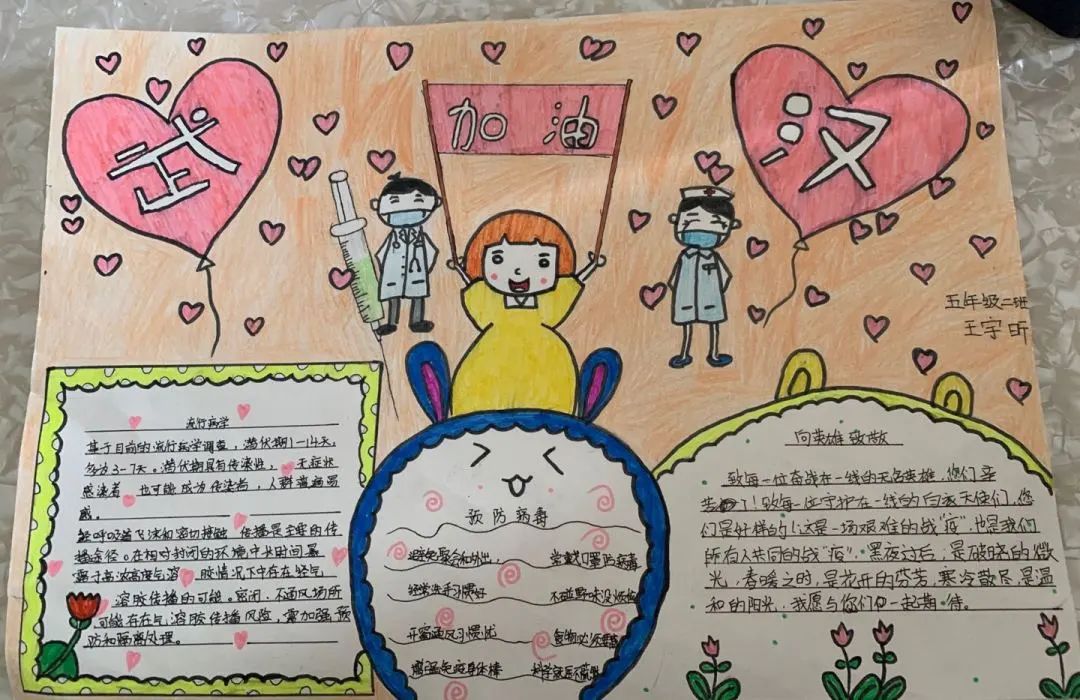 武
加油
汉
五年级二班
王宇昕
流行病学
基于目前的流行病学调查，潜伏期1-14天，
多为3-7天。潜伏期具有传染性，无症状
感染者也可能成为传染者，人群普遍易
感。
经呼吸道飞沫和密切接触传播是主要的传
播途径。在相对封闭的环境中长时间暴
露于高浓度气溶胶情况下中存在经气
溶胶传播的可能。密闭、不通风场所
可能存在气溶胶传播风险，需加强预
防和隔离处理。
预防病毒
避免聚会和外出 常戴口罩防病毒
经常洗手习惯好 不碰野味没烦恼
开窗通风习惯优 食物必须要熟
增强免疫身体棒 科学就医不慌
向英雄致敬
致每一位奋战在一线的无名英雄，您们辛
苦了！致每一位守护在一线的白衣天使们，您
们是好样的！这是一场艰难的战"疫"，也是我们
所有人共同的战"疫"。黑夜过后，是破晓的微
光，春暖之时，是花开的芬芳，寒冷散尽，是温
和的阳光。我愿与你们一起期待。